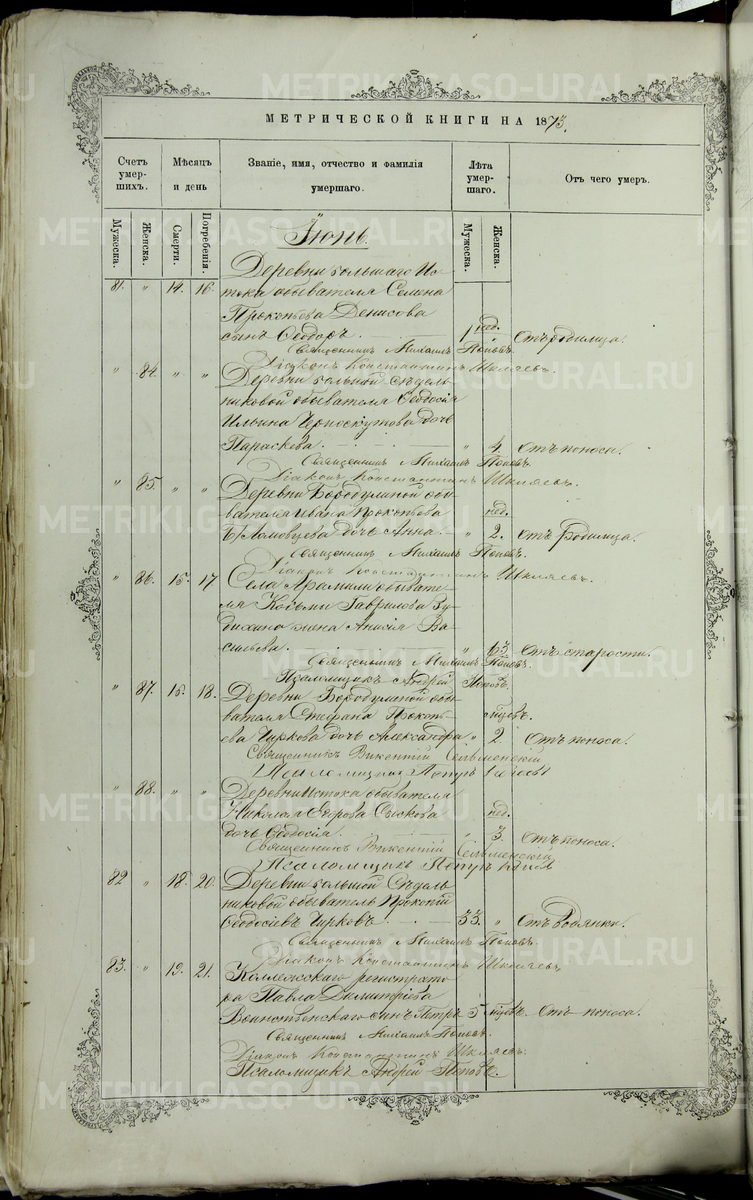 МЕТРИЧЕСКОЙ КНИГИ НА 1873.
Счетъ умер- шихъ. Мѣсяцъ и день Званіе, имя, отчество и фамилія умершаго. Лѣта умер- шаго. Отъ чего умеръ.
Мужеска. Женска. Смерти. Погребенія. Мужеска. Женска.
Іюнь.
Деревни большаго Ис-
81. " 14. 16. тока обывателя Семена
Прокопьева Денисова нед.
сынъ Ѳеодоръ. 1 " Отъ родимца.
Священникъ Михаилъ Поповъ.
Діаконъ Константинъ Шкляевъ.
" 84. " " Деревни большой Сѣдель-
никовой обывателя Ѳеодосія
Ильина Черноскутова дочь
Параскева. " 4. Отъ поноса.
Священникъ Михаилъ Поповъ.
Діаконъ Константинъ Шкляевъ.
" 85. " " Деревни Бородулиной обы-
вателя Ивана Прокопьева нед.
дочь Анна. " 2. Отъ родимца.
Священникъ Михаилъ Поповъ.
Діаконъ Константинъ Шкляевъ.
" 86. 15. 17 Села Арамили обывате-
ля Козьмы Гаврилова
жена Анисія Ва-
сильева. " 63. Отъ старости.
Священникъ Михаилъ Поповъ.
Псаломщикъ Андрей Поповъ.
" 87. 15. 18. Деревни Бородулиной обы-
вателя Стефана Прокопь- мѣсев.
ева Чиркова дочь Александра " 2 Отъ поноса.
Священникъ Викентій
Псаломщикъ Петръ
" 88. " " Деревни Истока обывателя
Николая Егорова Сыскова нед.
дочь Ѳеодосія. " 3. Отъ поноса.
Священникъ Викентій
Псаломщикъ Петръ
82 " 18. 20. Деревни большой Сѣдель-
никовой обыватель Прокопій
Ѳеодосіевъ Чирковъ. 33. " Отъ водянки.
Священникъ Михаилъ Поповъ.
Діаконъ Константинъ Шкляевъ
83. " 19. 21. Коллежскаго регистрато-
ра Павла Димитріева
Воинственскаго сынъ Петръ 5 мѣсев. Отъ поноса.
Священникъ Михаилъ Поповъ.
Діаконъ Константинъ Шкляевъ.
Псаломщикъ Андрей Поповъ.
METRIKI.GASO-URAL.RU